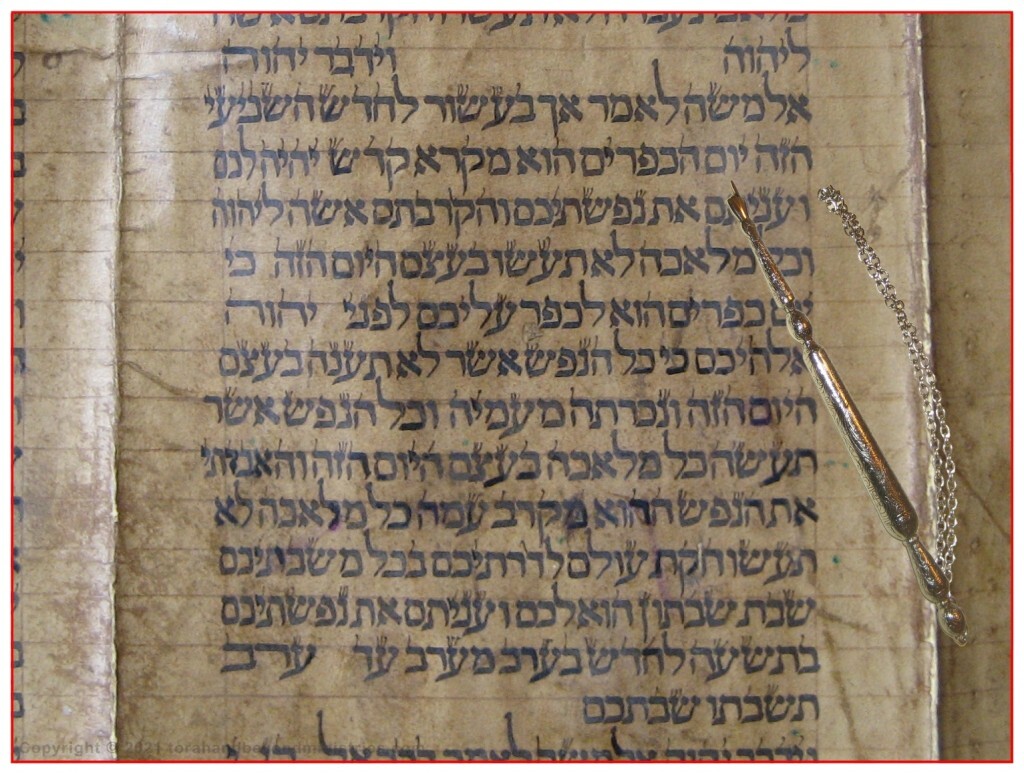 מלאכת עבדה לא תעשו והקרבתם אשה
ליהוה וידבר יהוה
אל משה לאמר אך בעשור לחדש השביעי
הזה יום הכפרים הוא מקרא קדש יהיה לכם
ועניתם את נפשתיכם והקרבתם אשה ליהוה
וכל מלאכה לא תעשו בעצם היום הזה כי
יום כפרים הוא לכפר עליכם לפני יהוה
אלהיכם כי כל הנפש אשר לא תענה בעצם
היום הזה ונכרתה מעמיה וכל הנפש אשר
תעשה כל מלאכה בעצם היום הזה והאבדתי
את הנפש ההוא מקרב עמה כל מלאכה לא
תעשו חקת עולם לדרתיכם בכל משבתיכם
שבת שבתון הוא לכם ועניתם את נפשתיכם
בתשעה לחדש בערב מערב עד ערב
תשבתו שבתכם
וידבר יהוה אל משה לאמר דבר אל
Copyright © 2021